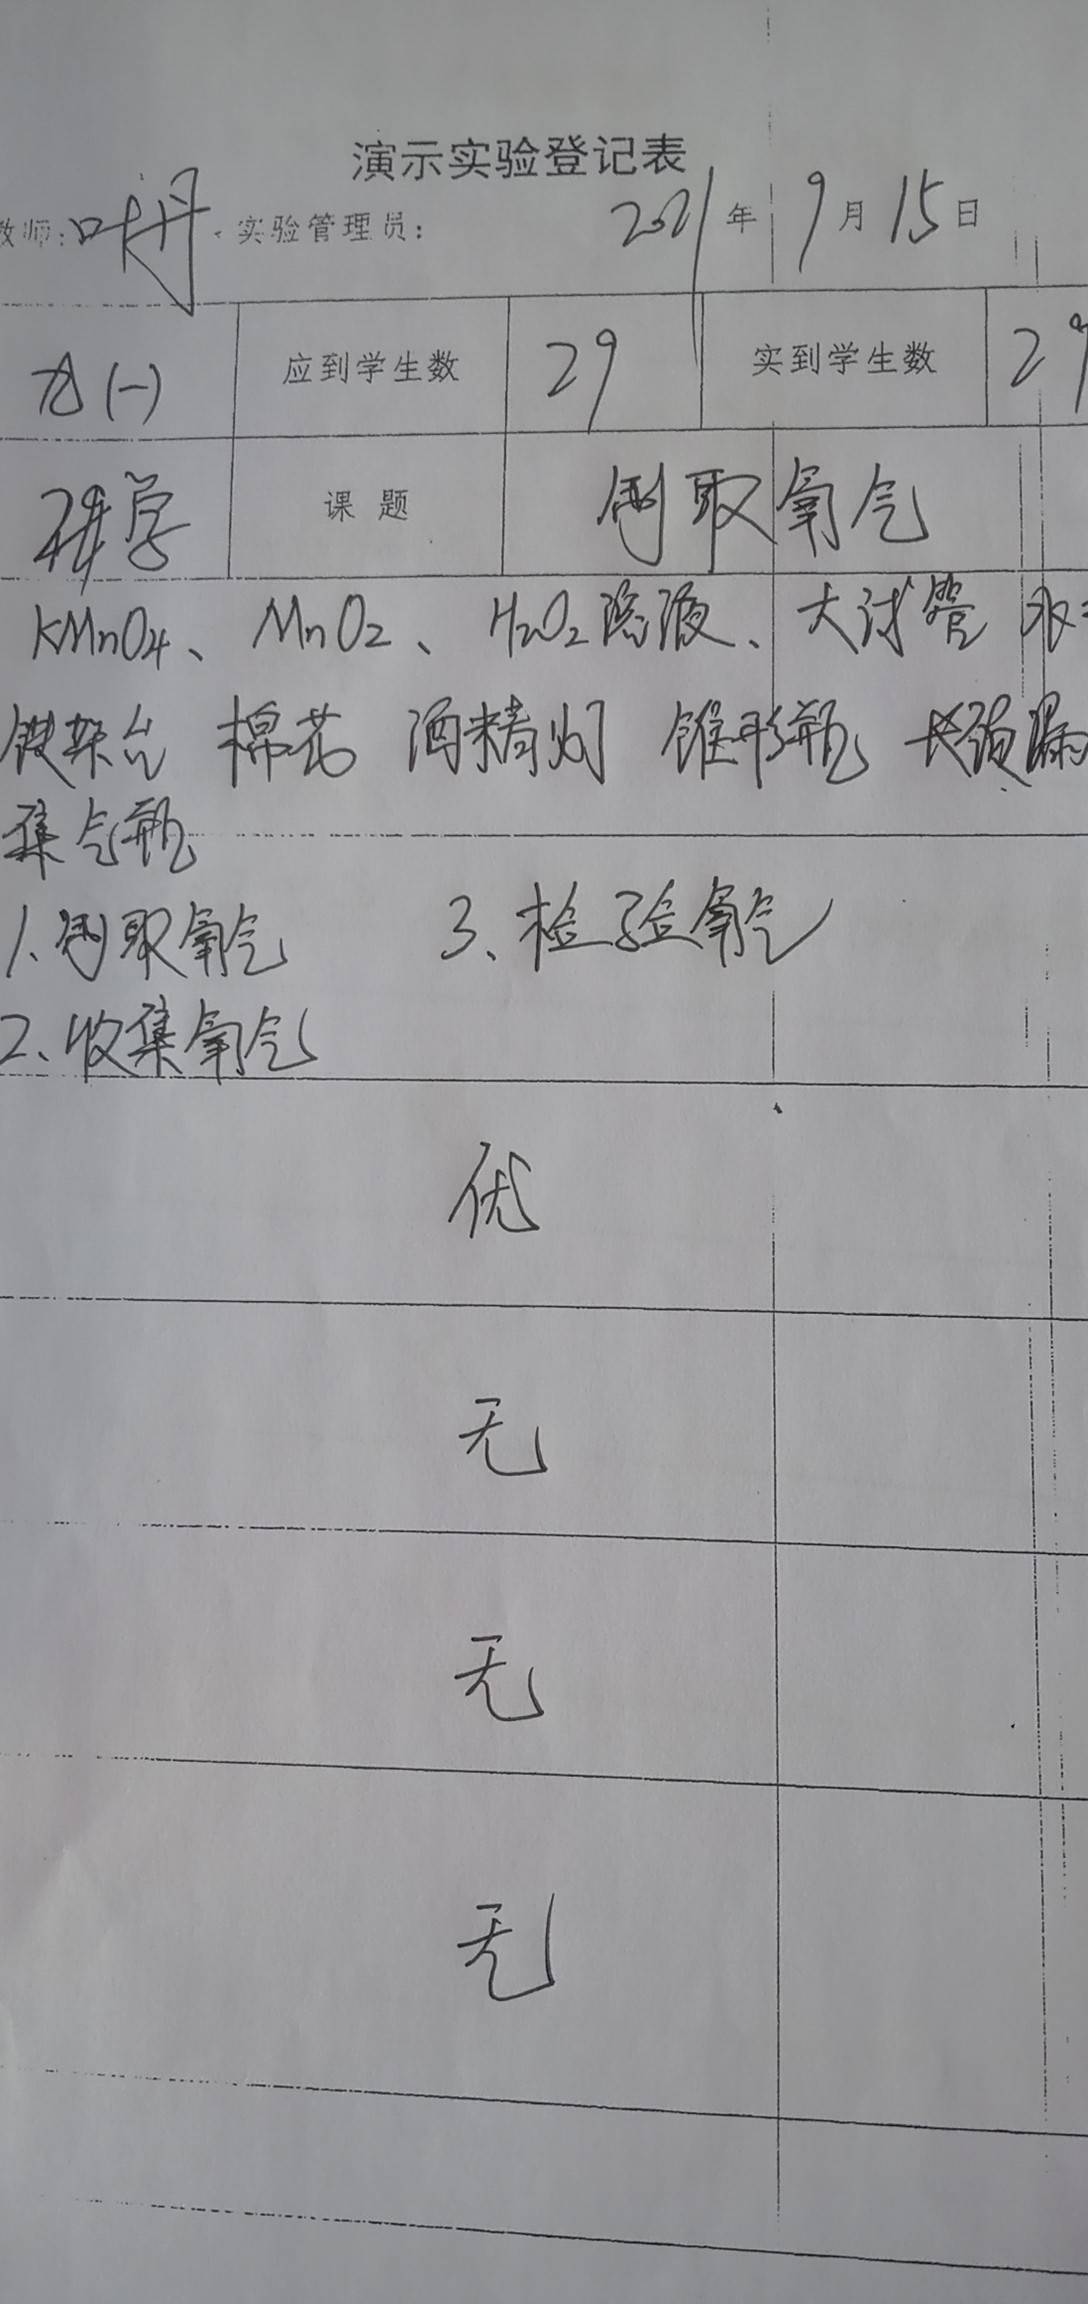 演示实验登记表
教师: 叶丹 实验管理员: 2021年 9月15日
九(一) 应到学生数 29 实到学生数 29
科学 课题 制取氧气
KMnO4、MnO2、H2O2溶液、大试管 水
铁架台 棉花 酒精灯 锥形瓶 长颈漏
集气瓶
1.制取氧气 3、检验氧气
2、收集氧气
优
无
无
无